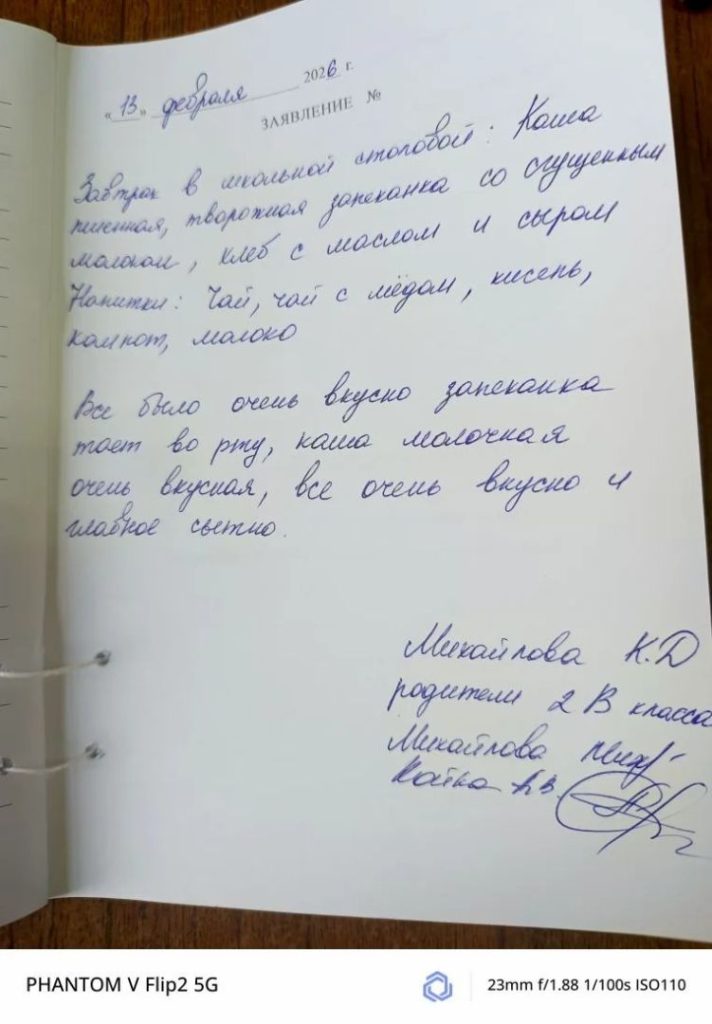 « 13 » февраля 2026 г.
ЗАЯВЛЕНИЕ №
Завтрак в школьной столовой: Каша
пшенная, творожная запеканка со сгущенным
молоком, хлеб с маслом и сыром
Напитки: Чай, чай с мёдом, кисель,
компот, молоко
Все было очень вкусно запеканка
тает во рту, каша молочная
очень вкусная, все очень вкусно и
главное сытно.
Михайлова К.Д
родители 2 В класса
Михайлова
PHANTOM V Flip2 5G
23mm f/1.88 1/100s ISO110